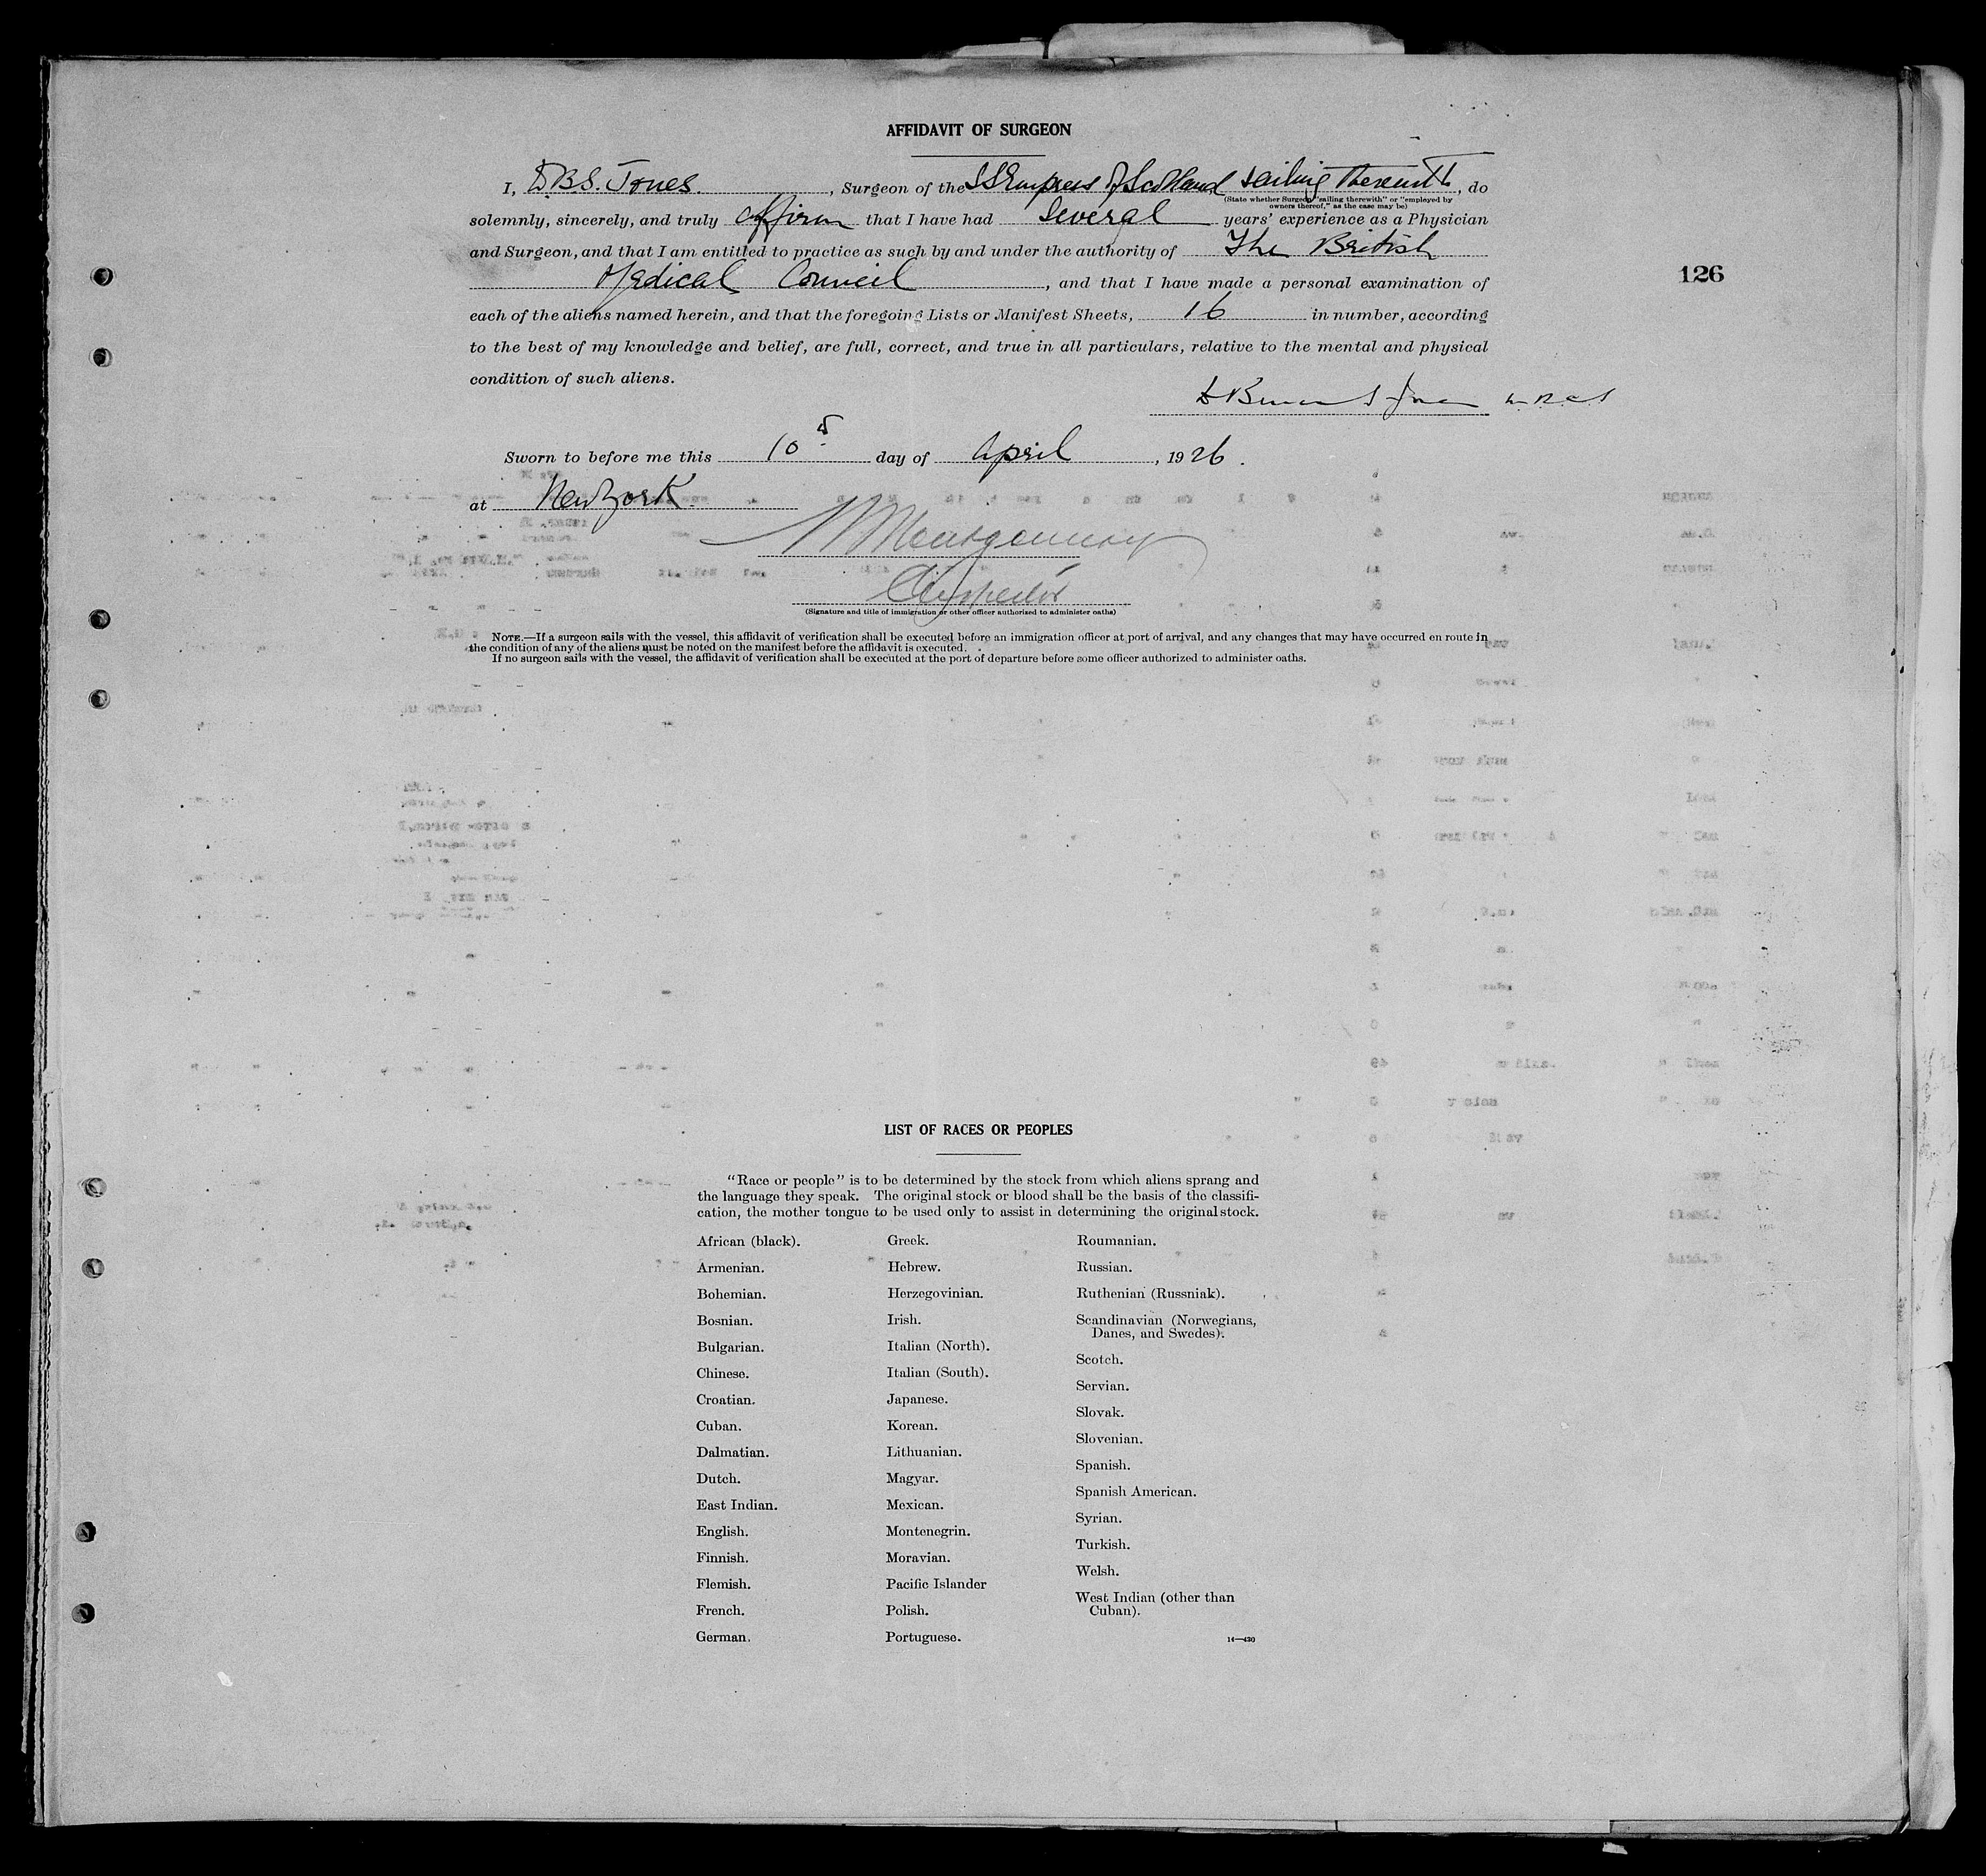 AFFIDAVIT OF SURGEON
I, D.B.S. Jones, Surgeon of the SS Empress of Scotland sailing therewith, do
(State whether Surgeon "sailing therewith" or "employed by
owners thereof," as the case may be)
solemnly, sincerely, and truly affirm that I have had several years' experience as a Physician
and Surgeon, and that I am entitled to practice as such by and under the authority of The British
Medical Council, and that I have made a personal examination of
126
each of the aliens named herein, and that the foregoing Lists or Manifest Sheets, 16 in number, according
to the best of my knowledge and belief, are full, correct, and true in all particulars, relative to the mental and physical
condition of such aliens.
Sworn to before me this 10 day of April, 1926.
at New York.
Montgomery
Inspector
(Signature and title of immigration or other officer authorized to administer oaths)
NOTE.—If a surgeon sails with the vessel, this affidavit of verification shall be executed before an immigration officer at port of arrival, and any changes that may have occurred en route in
the condition of any of the aliens must be noted on the manifest before the affidavit is executed.
If no surgeon sails with the vessel, the affidavit of verification shall be executed at the port of departure before some officer authorized to administer oaths.
LIST OF RACES OR PEOPLES
"Race or people" is to be determined by the stock from which aliens sprang and
the language they speak. The original stock or blood shall be the basis of the classifi-
cation, the mother tongue to be used only to assist in determining the original stock.
African (black).
Armenian.
Bohemian.
Bosnian.
Bulgarian.
Chinese.
Croatian.
Cuban.
Dalmatian.
Dutch.
East Indian.
English.
Finnish.
Flemish.
French.
German.
Greek.
Hebrew.
Herzegovinian.
Irish.
Italian (North).
Italian (South).
Japanese.
Korean.
Lithuanian.
Magyar.
Mexican.
Montenegrin.
Moravian.
Pacific Islander
Polish.
Portuguese.
Roumanian.
Russian.
Ruthenian (Russniak).
Scandinavian (Norwegians,
Danes, and Swedes).
Scotch.
Servian.
Slovak.
Slovenian.
Spanish.
Spanish American.
Syrian.
Turkish.
Welsh.
West Indian (other than
Cuban).
14—430